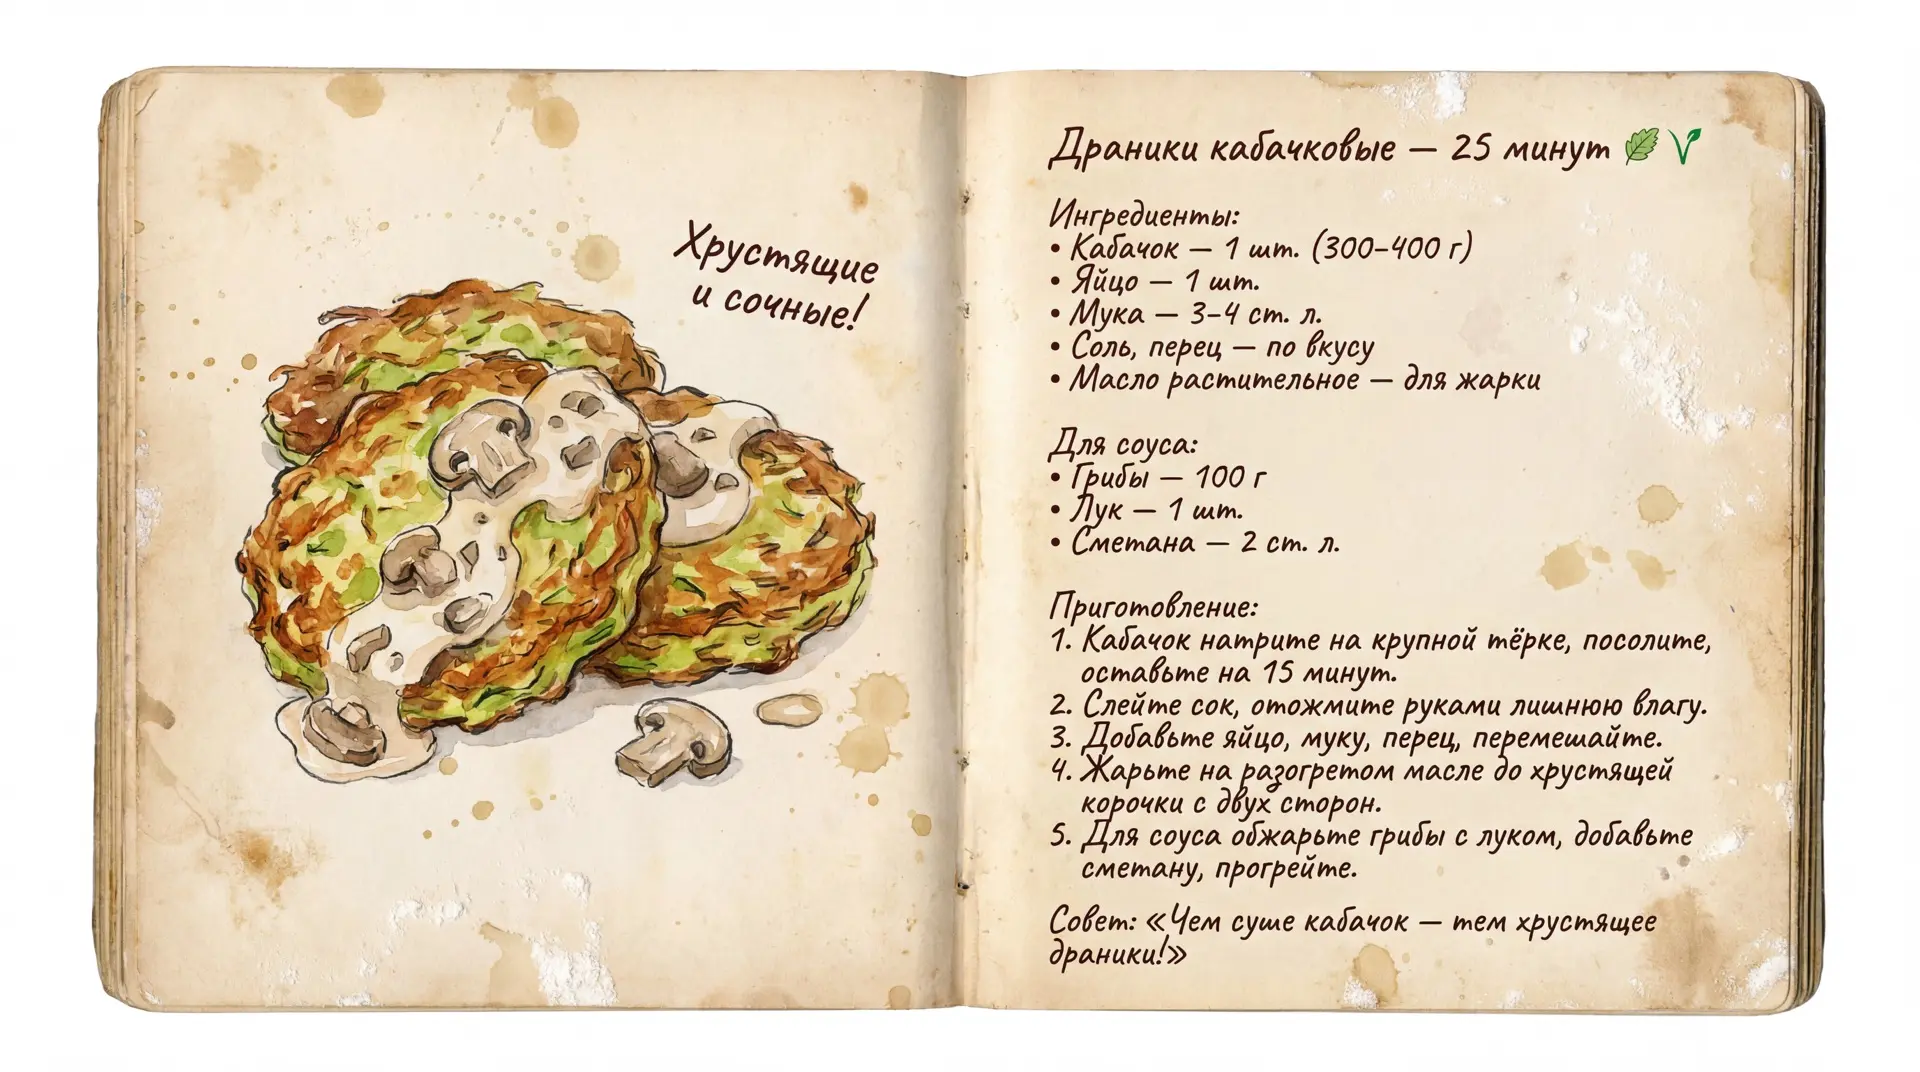 Хрустящие
и сочные!
Драники кабачковые — 25 минут
Ингредиенты:
• Кабачок — 1 шт. (300–400 г)
• Яйцо — 1 шт.
• Мука — 3–4 ст. л.
• Соль, перец — по вкусу
• Масло растительное — для жарки
Для соуса:
• Грибы — 100 г
• Лук — 1 шт.
• Сметана — 2 ст. л.
Приготовление:
1. Кабачок натрите на крупной тёрке, посолите,
оставьте на 15 минут.
2. Слейте сок, отожмите руками лишнюю влагу.
3. Добавьте яйцо, муку, перец, перемешайте.
4. Жарьте на разогретом масле до хрустящей
корочки с двух сторон.
5. Для соуса обжарьте грибы с луком, добавьте
сметану, прогрейте.
Совет: «Чем суше кабачок — тем хрустящее
драники!»